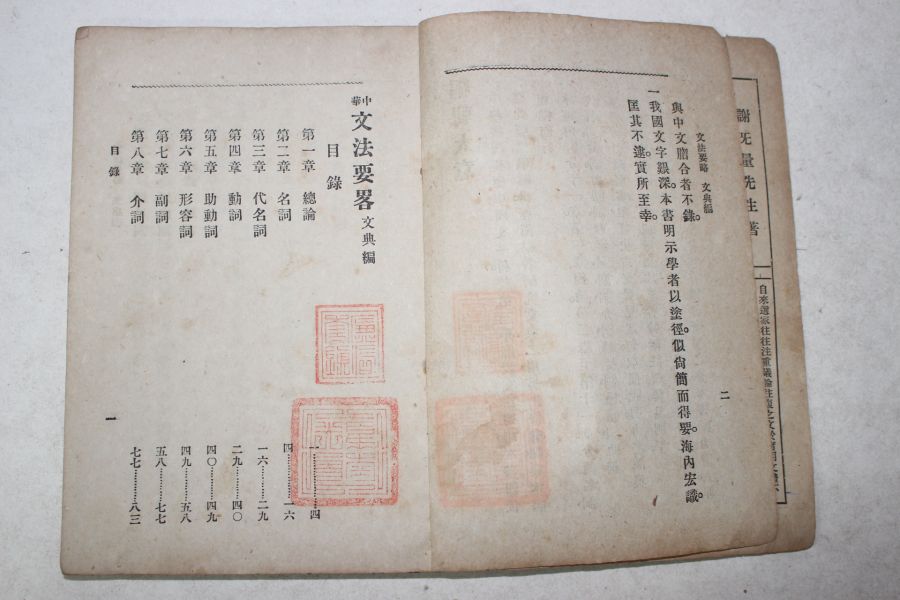 謝无量先生著
文法要略　文典編
二
與中文脗合者不錄。
一我國文字銀深。本書明示學者以塗徑。似尙簡而得要。海內宏識。
匡其不逮。實所至幸。
中華文法要畧文典編
目錄
第一章　總論　一………四
第二章　名詞　四………一六
第三章　代名詞　一六………二九
第四章　動詞　二九………四〇
第五章　助動詞　四〇………四九
第六章　形容詞　四九………五八
第七章　副詞　五八………七七
第八章　介詞　七七………八三
目錄
一